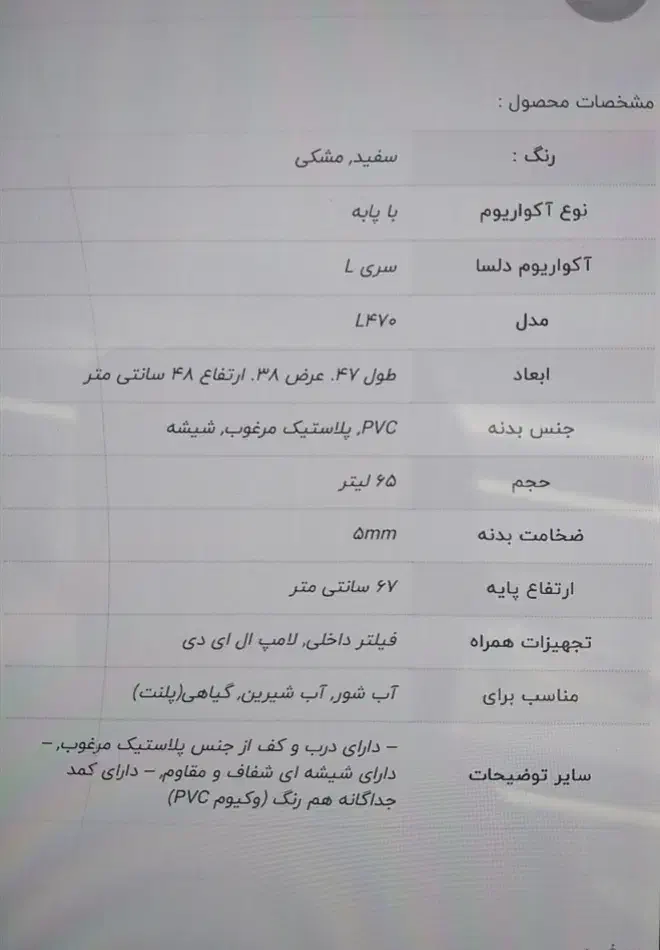 مشخصات محصول :
رنگ : سفید, مشکی
نوع آکواریوم با پایه
آکواریوم دلسا سری L
مدل L۴۷۰
ابعاد طول ۴۷. عرض ۳۸. ارتفاع ۴۸ سانتی متر
جنس بدنه PVC, پلاستیک مرغوب, شیشه
حجم ۶۵ لیتر
ضخامت بدنه ۵mm
ارتفاع پایه ۶۷ سانتی متر
تجهیزات همراه فیلتر داخلی, لامپ ال ای دی
مناسب برای آب شور, آب شیرین, گیاهی(پلنت)
سایر توضیحات – دارای درب و کف از جنس پلاستیک مرغوب, –
دارای شیشه ای شفاف و مقاوم, – دارای کمد
جداگانه هم رنگ (وکیوم PVC)